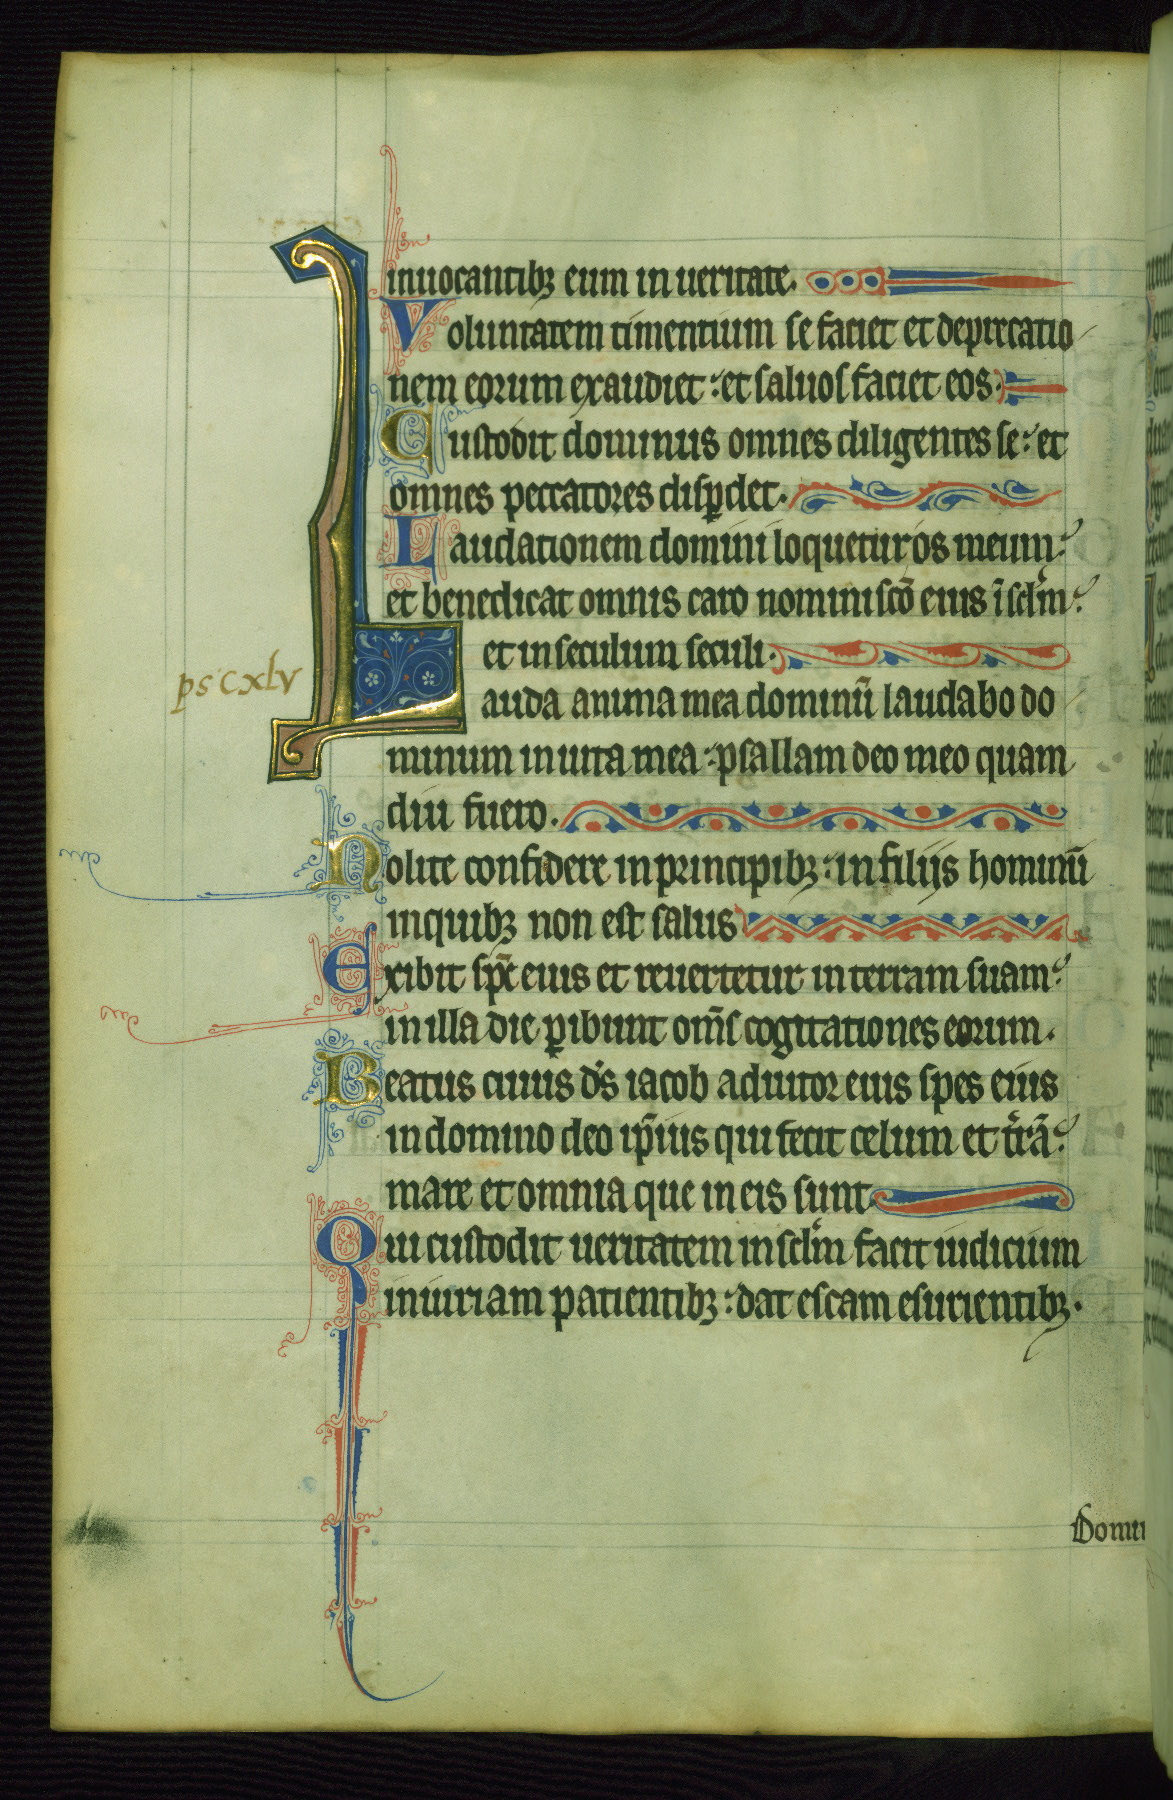 inuocantibꝫ eum in ueritate.
Voluntatem timentium se faciet et deprecatio
nem eorum exaudiet : et saluos faciet eos.
Custodit dominus omnes diligentes se : et
omnes peccatores disꝑdet.
Laudationem domini loquetur os meum :
et benedicat omnis caro nomini scō eius ī sclm̄ :
et in seculum seculi.
ps CXLV
Lauda anima mea dominū laudabo do
minum in uita mea : psallam deo meo quam
diu fuero.
Nolite confidere in principibꝫ : in filijs hominū
inquibꝫ non est salus
Exibit sp̄c eius et reuertetur in terram suam :
in illa die ꝑibunt om̄s cogitationes eorum.
Beatus cuius ds̄ iacob adiutor eius spes eius
in domino deo ip̄ius qui fecit celum et tr̄ā :
mare et omnia que in eis sunt
Qui custodit ueritatem in sclm̄ facit iudicium
iniuriam patientibꝫ : dat escam esurientibꝫ.
Domi